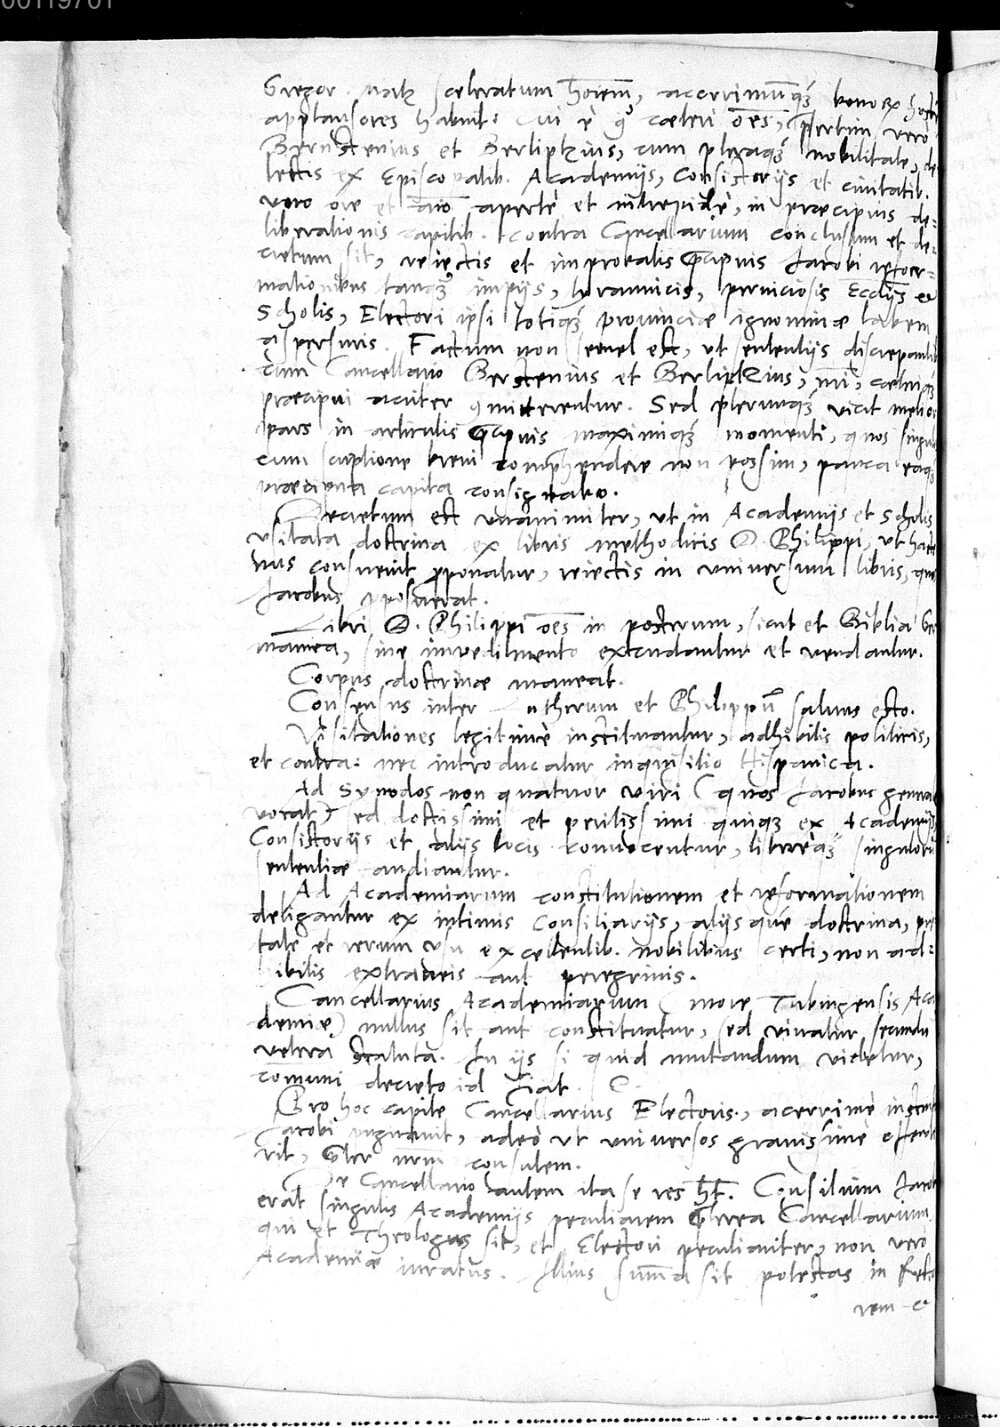 00119701
Gregor. sceleratum hoīem, acerrimūq́; bonorū
applausores habuit: cui ē caeteri oēs, vero
Bernstenius et Berliptzius, cum pleraq́; nobilitate, de-
lectis ex Episcopalib. Academijs, Consistorijs et civitatib.
vero ore et aīo apertè et intrepidè, in praecipuis de-
liberationis capitib. contra Cancellarium conclusum et de-
cretum sit, reiectis et improbatis Jacobi refor-
mationibus tanq́; impijs, tyrannicis, perniciosis Eccijs et
Scholis, Electori ipsi totiq́; provinciae ignominiae labem
aspersuris. Factum non semel est, ut sententijs discrepantib
cum Cancellario Berstenius et Berliptzius,
praecipui acriter Sed plerumq́; vicit melior
pars in articulis maximiq́; momenti, quos singul
cum scriptione brevi comprehendere non possim, pauca eaq́;
praecipua capita consignabo.
Decretum est unanimiter, ut in Academijs et Scholis
usitata doctrina ex libris methodicis D. Philippi, ut hacte
nus consuevit proponatur, reiectis in universum libris, quos
Jacobus
Libri D. Philippi oēs in posterum, sicut et Biblia Ger
manica, sine impedimento excudantur et vendantur.
Corpus doctrinae maneat.
Consensus inter Lutherum et Philippū salvus esto.
Visitationes legitimè instituantur, adhibitis politicis,
et contra: nec introducatur inquisitio Hispanica.
Ad Synodos non quatuor viri (quos Jacobus genera
vocat) sed doctissimi et peritissimi quiq́; ex Academijs,
Consistorijs et alijs locis convocentur, libereq́; singuloru
sententiae audiantur.
Ad Academiarum constitutionem et reformationem
deligantur ex intimis Consiliarijs, alijsque doctrina, pie
tate et rerum usu excellentib. nobilibus certi, non ad-
hibitis extraneis aut peregrinis.
Cancellarius Academiarum (more Tubingensis Aca
demiae) nullus sit aut constituatur, sed vivatur secundu
vetera statuta. In ijs si quid mutandum videtur,
cōmuni decreto id fiat.
Pro hoc capite Cancellarius Electoris, acerrimè
Jacobi pugnavit, adeò ut universos gravissimè offende
rit, consulem.
De Cancellario autem ita se res Consilium Jacob
erat singulis Academijs peculiarem Cancellarium
qui et Theologus sit, et Electori peculiariter, non vero
Academiae iuratus. Illius sum̄a sit potestas in Recto
rem et